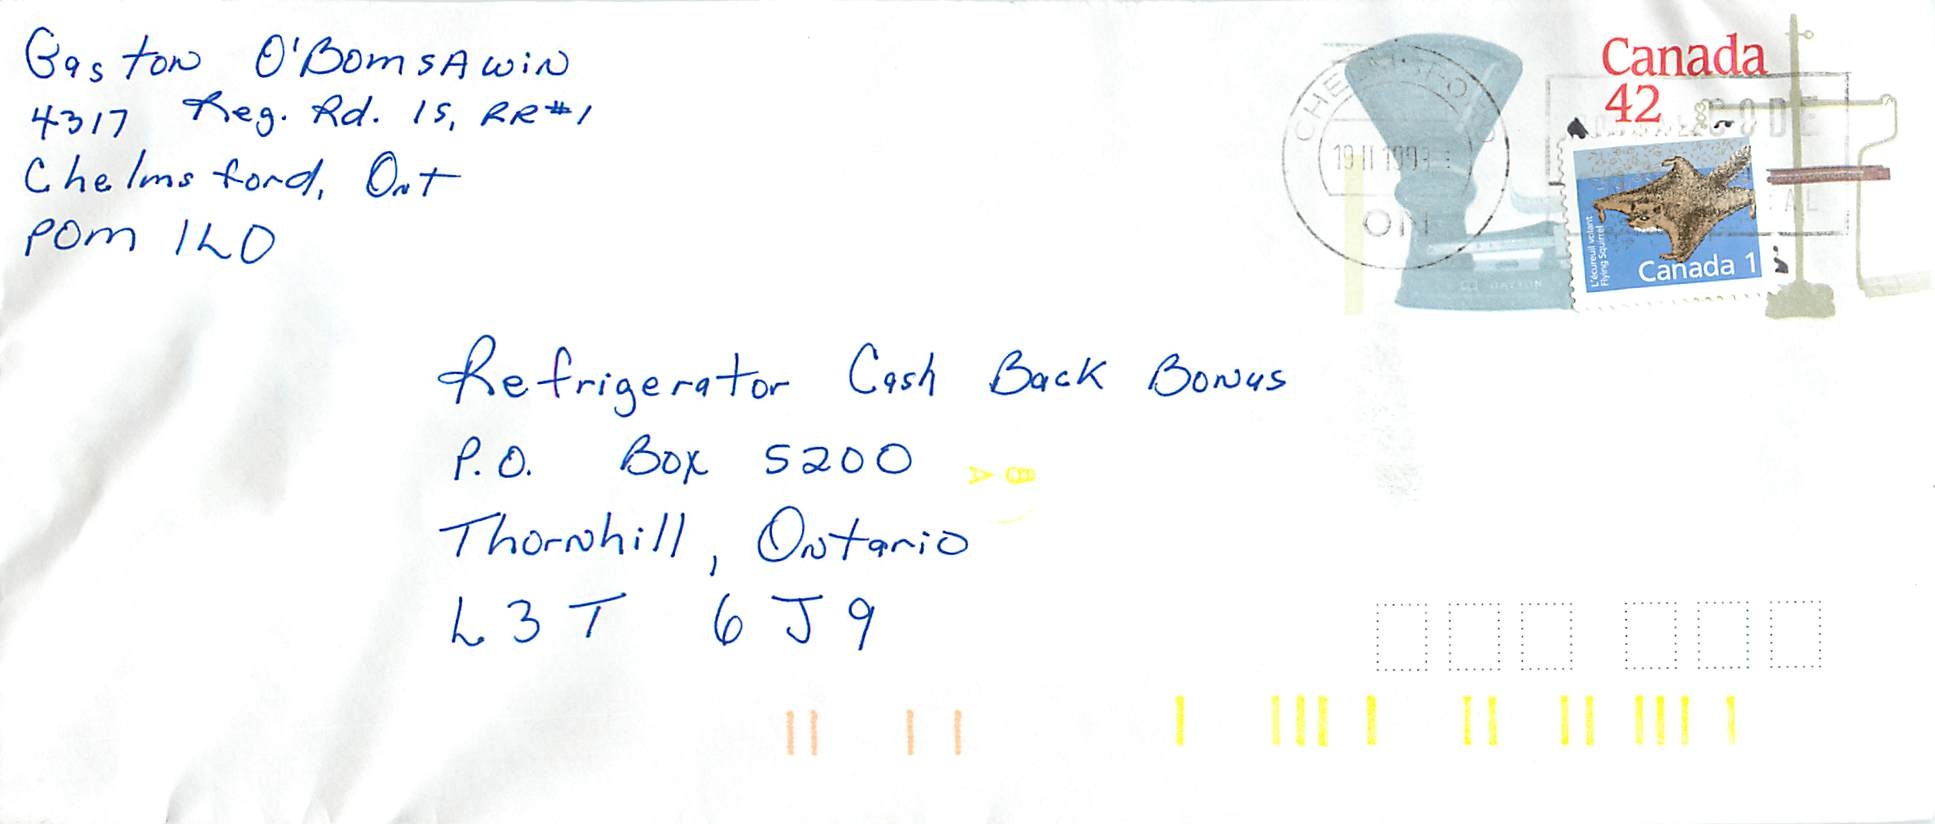 Gaston O'BomsAwin
4317 Reg. Rd. 15, RR#1
Chelmsford, Ont
POM 1L0
Canada
42
CHELMSFORD
19 II 1993
ON
CODE
L'écureuil volant
Flying Squirrel
Canada 1
DAYTON
Refrigerator Cash Back Bonus
P.O. Box 5200
Thornhill, Ontario
L3T 6J9